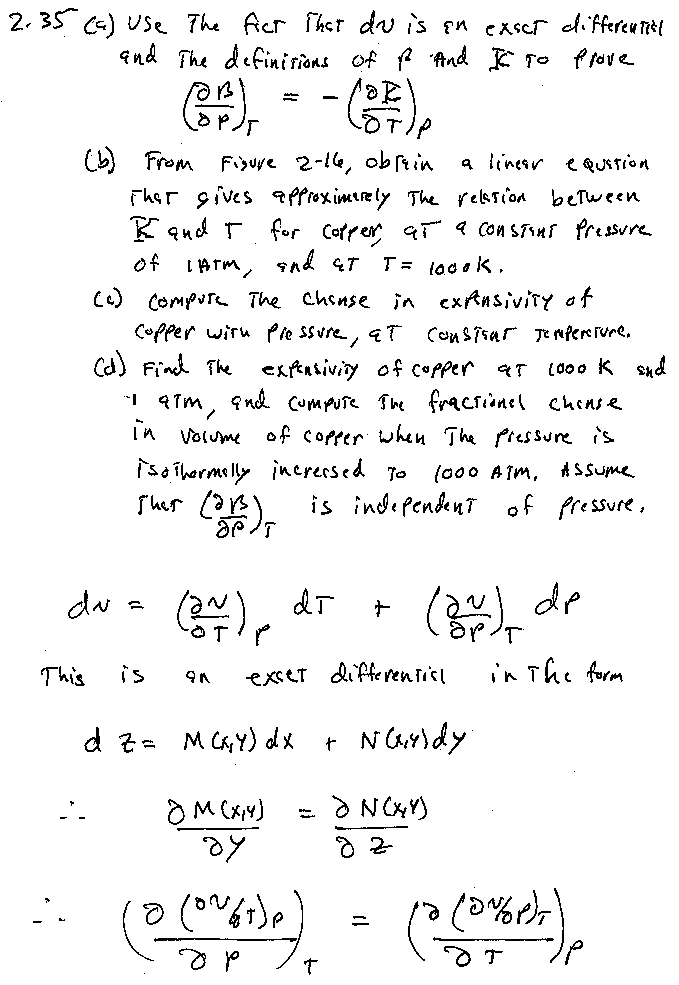 2.35 (a) Use The fact That dv is an exact differential
and The definitions of β And K To Prove
(∂β/∂P)_T = - (∂K/∂T)_P
(b) From Figure 2-16, obtain a linear equation
That gives approximately The relation between
K and T for Copper, at a constant Pressure
of 1 Atm, and at T = 1000 K.
(c) Compute The change in expansivity of
Copper with Pressure, at Constant Temperature.
(d) Find The expansivity of copper at 1000 K and
1 atm, and compute The fractional change
in Volume of copper when The pressure is
isothermally increased To 1000 Atm. Assume
That (∂β/∂P)_T is independent of pressure.
dv = (∂v/∂T)_P dT + (∂v/∂P)_T dP
This is an exact differential in The form
dz = M(x,y) dx + N(x,y) dy
∴ ∂M(x,y)/∂y = ∂N(x,y)/∂z
∴ (∂(∂v/∂T)_P/∂P)_T = (∂(∂v/∂P)_T/∂T)_P